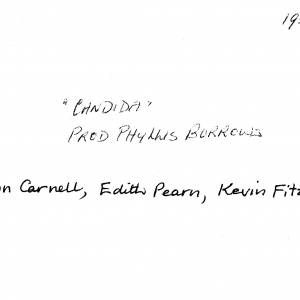 19
"CANDIDA"
PROD PHYLLIS BURROWS
on Carnell, Edith Pearn, Kevin Fitz